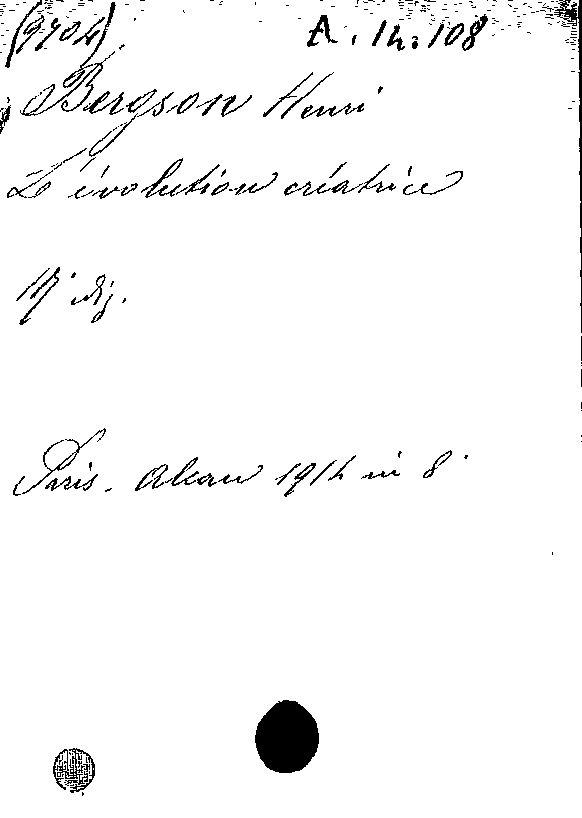 (9704) A. 14. 108
Bergson Henri
L'évolution créatrice
Paris. Alcan 1914 in 8°